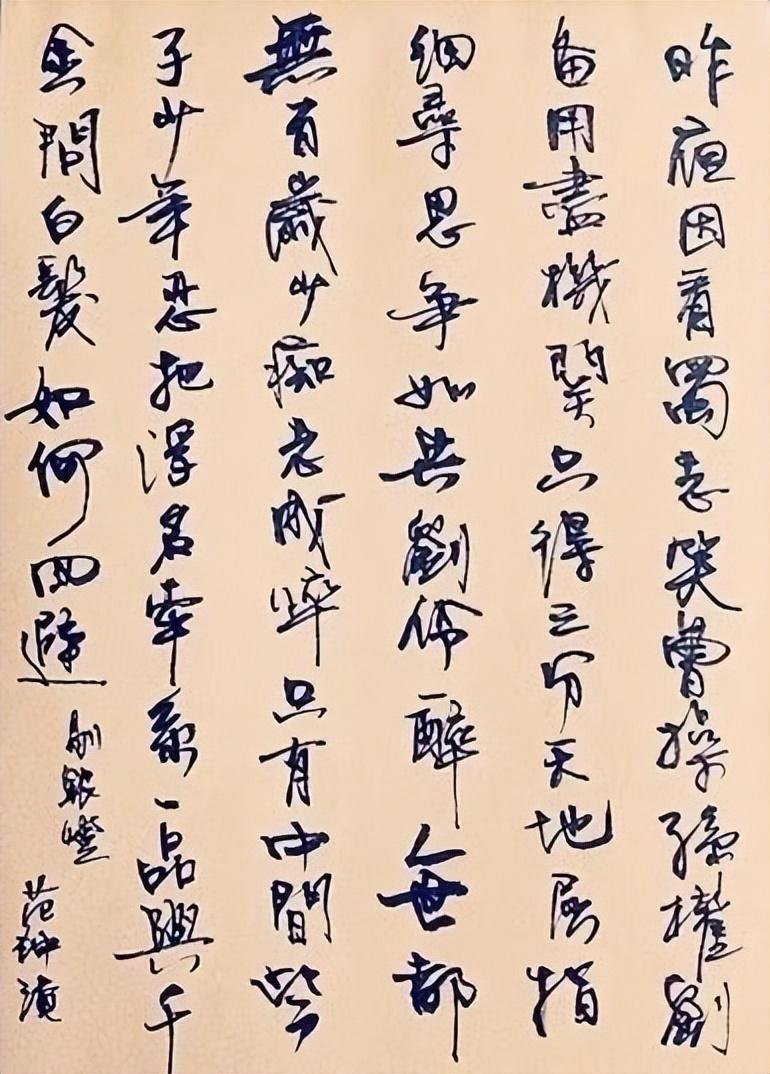 昨夜因看蜀志笑曹操孫權劉
备用盡機関只得三分天地屈指
細尋思争如共劉伶一醉人世都
無百歲少痴老成悴只有中間些
子少年忍把浮名牽系一品與千
金問白髮如何回避
剔銀燈
范仲淹